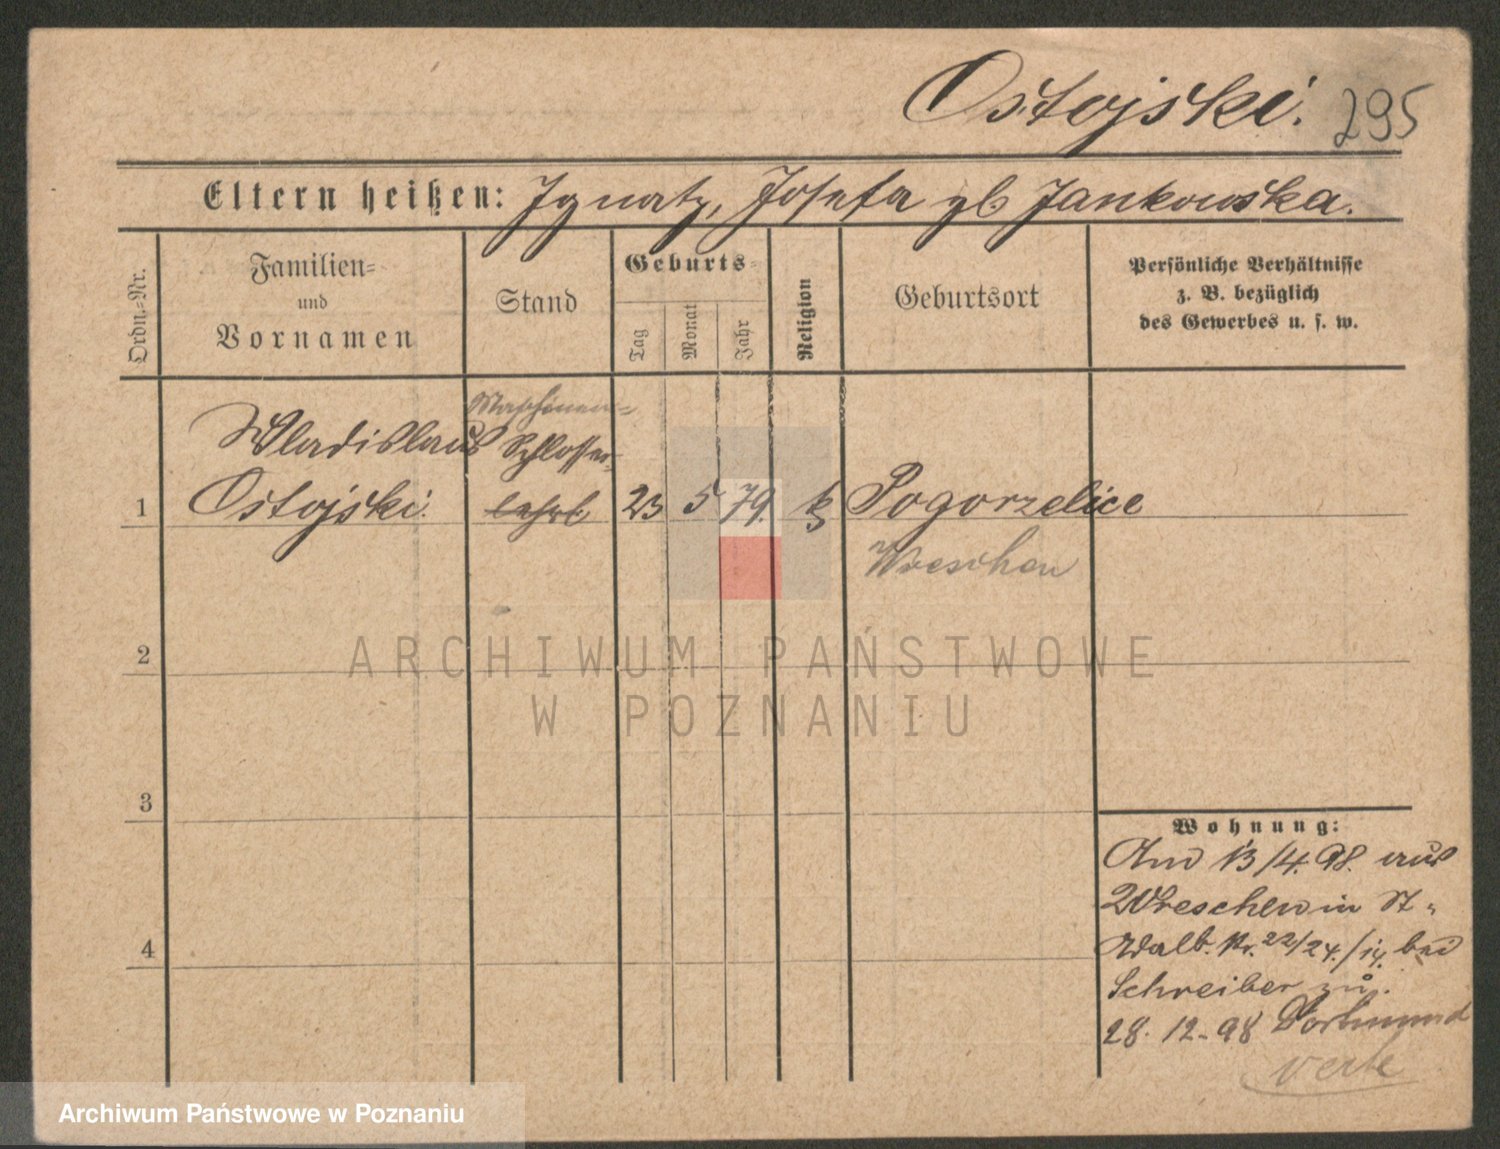 Ostojski. 295
Eltern heißen: Ignatz, Josefa gb Jankowska.
Ordn.-Nr.
Familien-
und
Vornamen
Stand
Geburts-
Tag
Monat
Jahr
Religion
Geburtsort
Persönliche Verhältnisse
z. B. bezüglich
des Gewerbes u. s. w.
Maschinen-
Wladislaus Schlosser-
1 Ostojski. lehrl 23 5 79. k Pogorzelice
Wreschen
2
ARCHIWUM PAŃSTWOWE
W POZNANIU
3
Wohnung:
Am 13/4. 98. aus
Wreschen in St-
Adalb. Nr. 22/24. / bei
Schreiber zu.
4
28. 12. 98 Dortmund
Archiwum Państwowe w Poznaniu